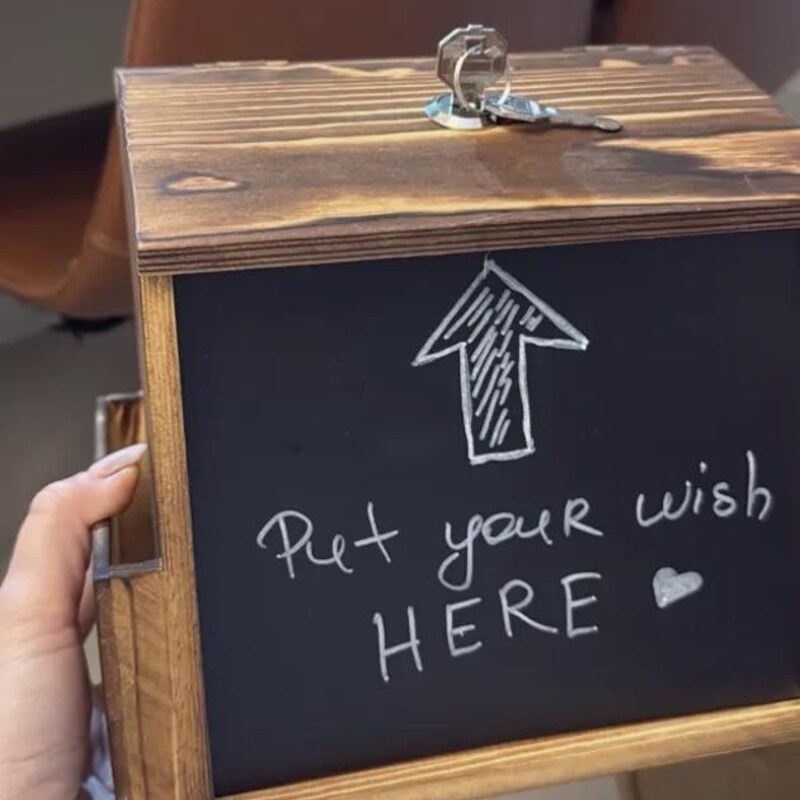 Put your wish
HERE